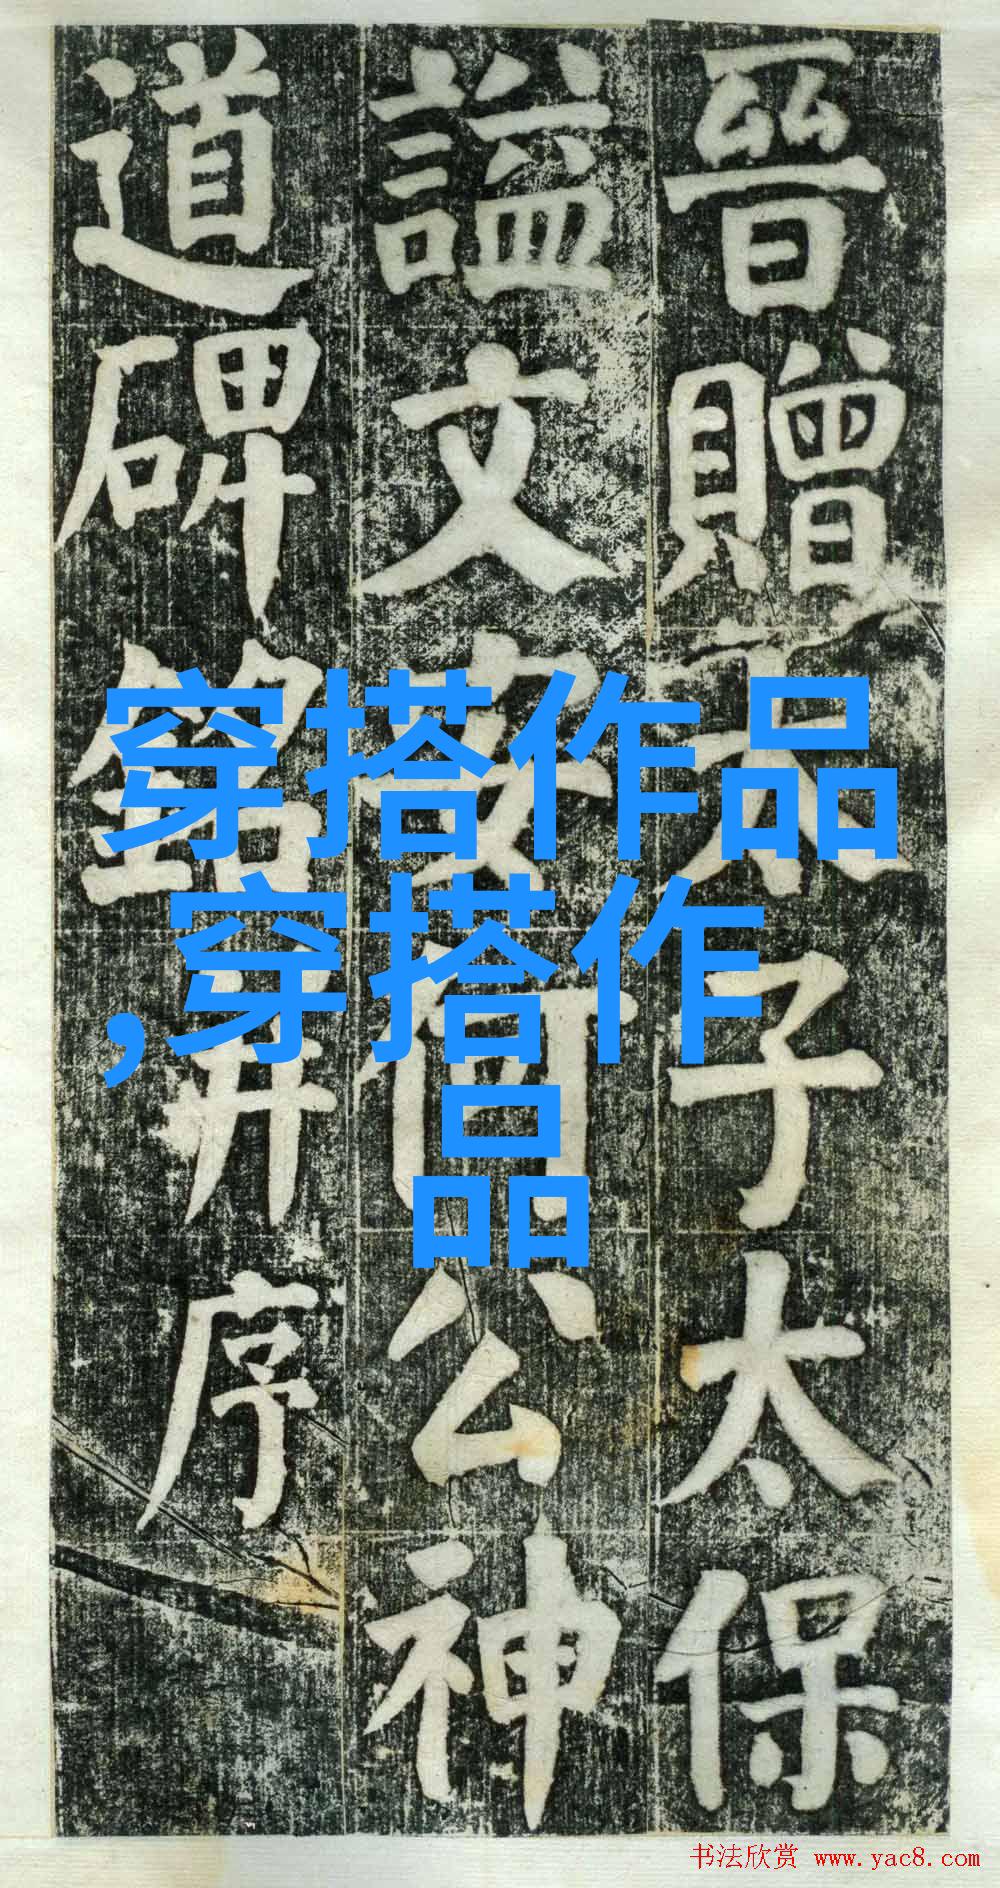 晉贈太子太保
謚文安何公神
道碑銘并序
穿搭作品
,穿搭作
品
书法欣赏 www.yac8.com